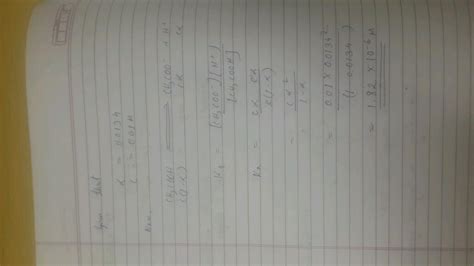 Given that
α = 0.0134
C = 0.01M
Now,
CH3COOH ⇌ CH3COO⁻ + H⁺
C(1-α) Cα Cα
Ka = [CH3COO⁻][H⁺] / [CH3COOH]
Ka = Cα . Cα / C(1-α)
= Cα² / 1-α
= 0.01 × 0.0134² / (1-0.0134)
= 1.82 × 10⁻⁶ M